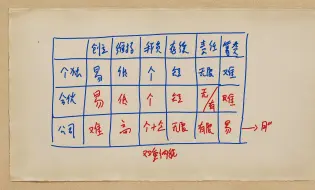 创立 维持 税负 存续 责任 筹资
个独 易 低 个 短 无限 难
合伙 易 低 个 短 无/有 难
公司 难 高 个+企 无限 有限 易 →
双重纳税